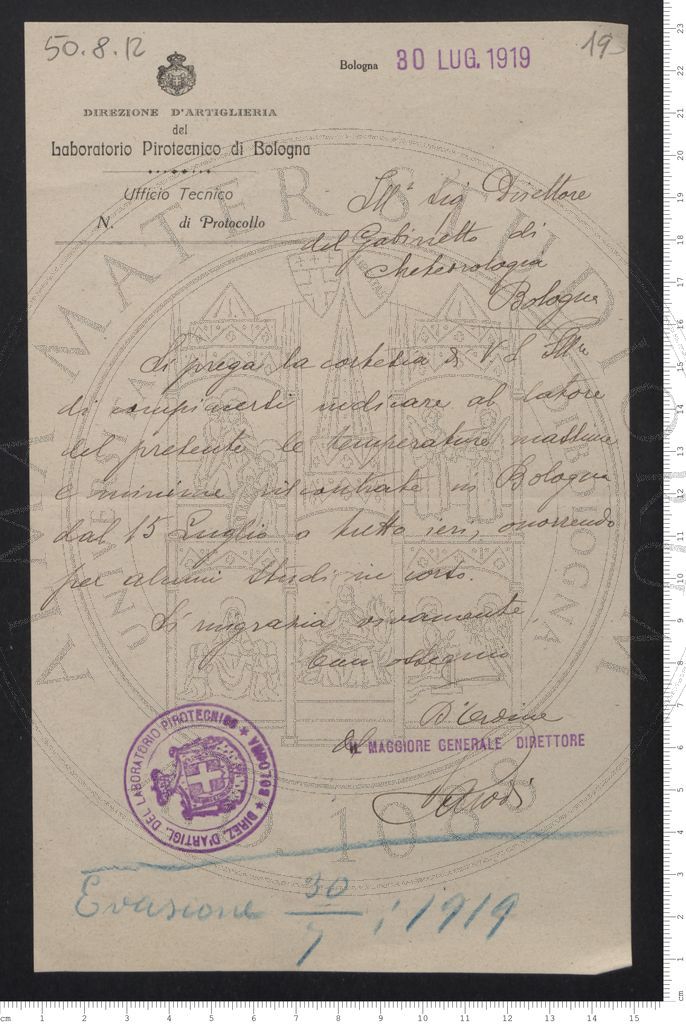 50.8.12
Bologna 30 LUG. 1919
DIREZIONE D'ARTIGLIERIA
del
Laboratorio Pirotecnico di Bologna
Ufficio Tecnico
N. di Protocollo
Direttore
del Gabinetto di
Meteorologia
Bologna
Si prega la cortesia di V. S. Ill.
di compiacersi indicare al latore
del presente le temperature massime
e minime riscontrate in Bologna
dal 15 Luglio a tutto ieri, occorrendo
per alcuni studi in corso.
Si ringrazia vivamente.
Con ossequio
D'Ordine
del IL MAGGIORE GENERALE DIRETTORE
DIREZ. D'ARTIGL. DEL LABORATORIO PIROTECNICO ★ BOLOGNA ★
Evasione 30/7/1919
ALMA MATER STUDIORUM
A.D. 1088